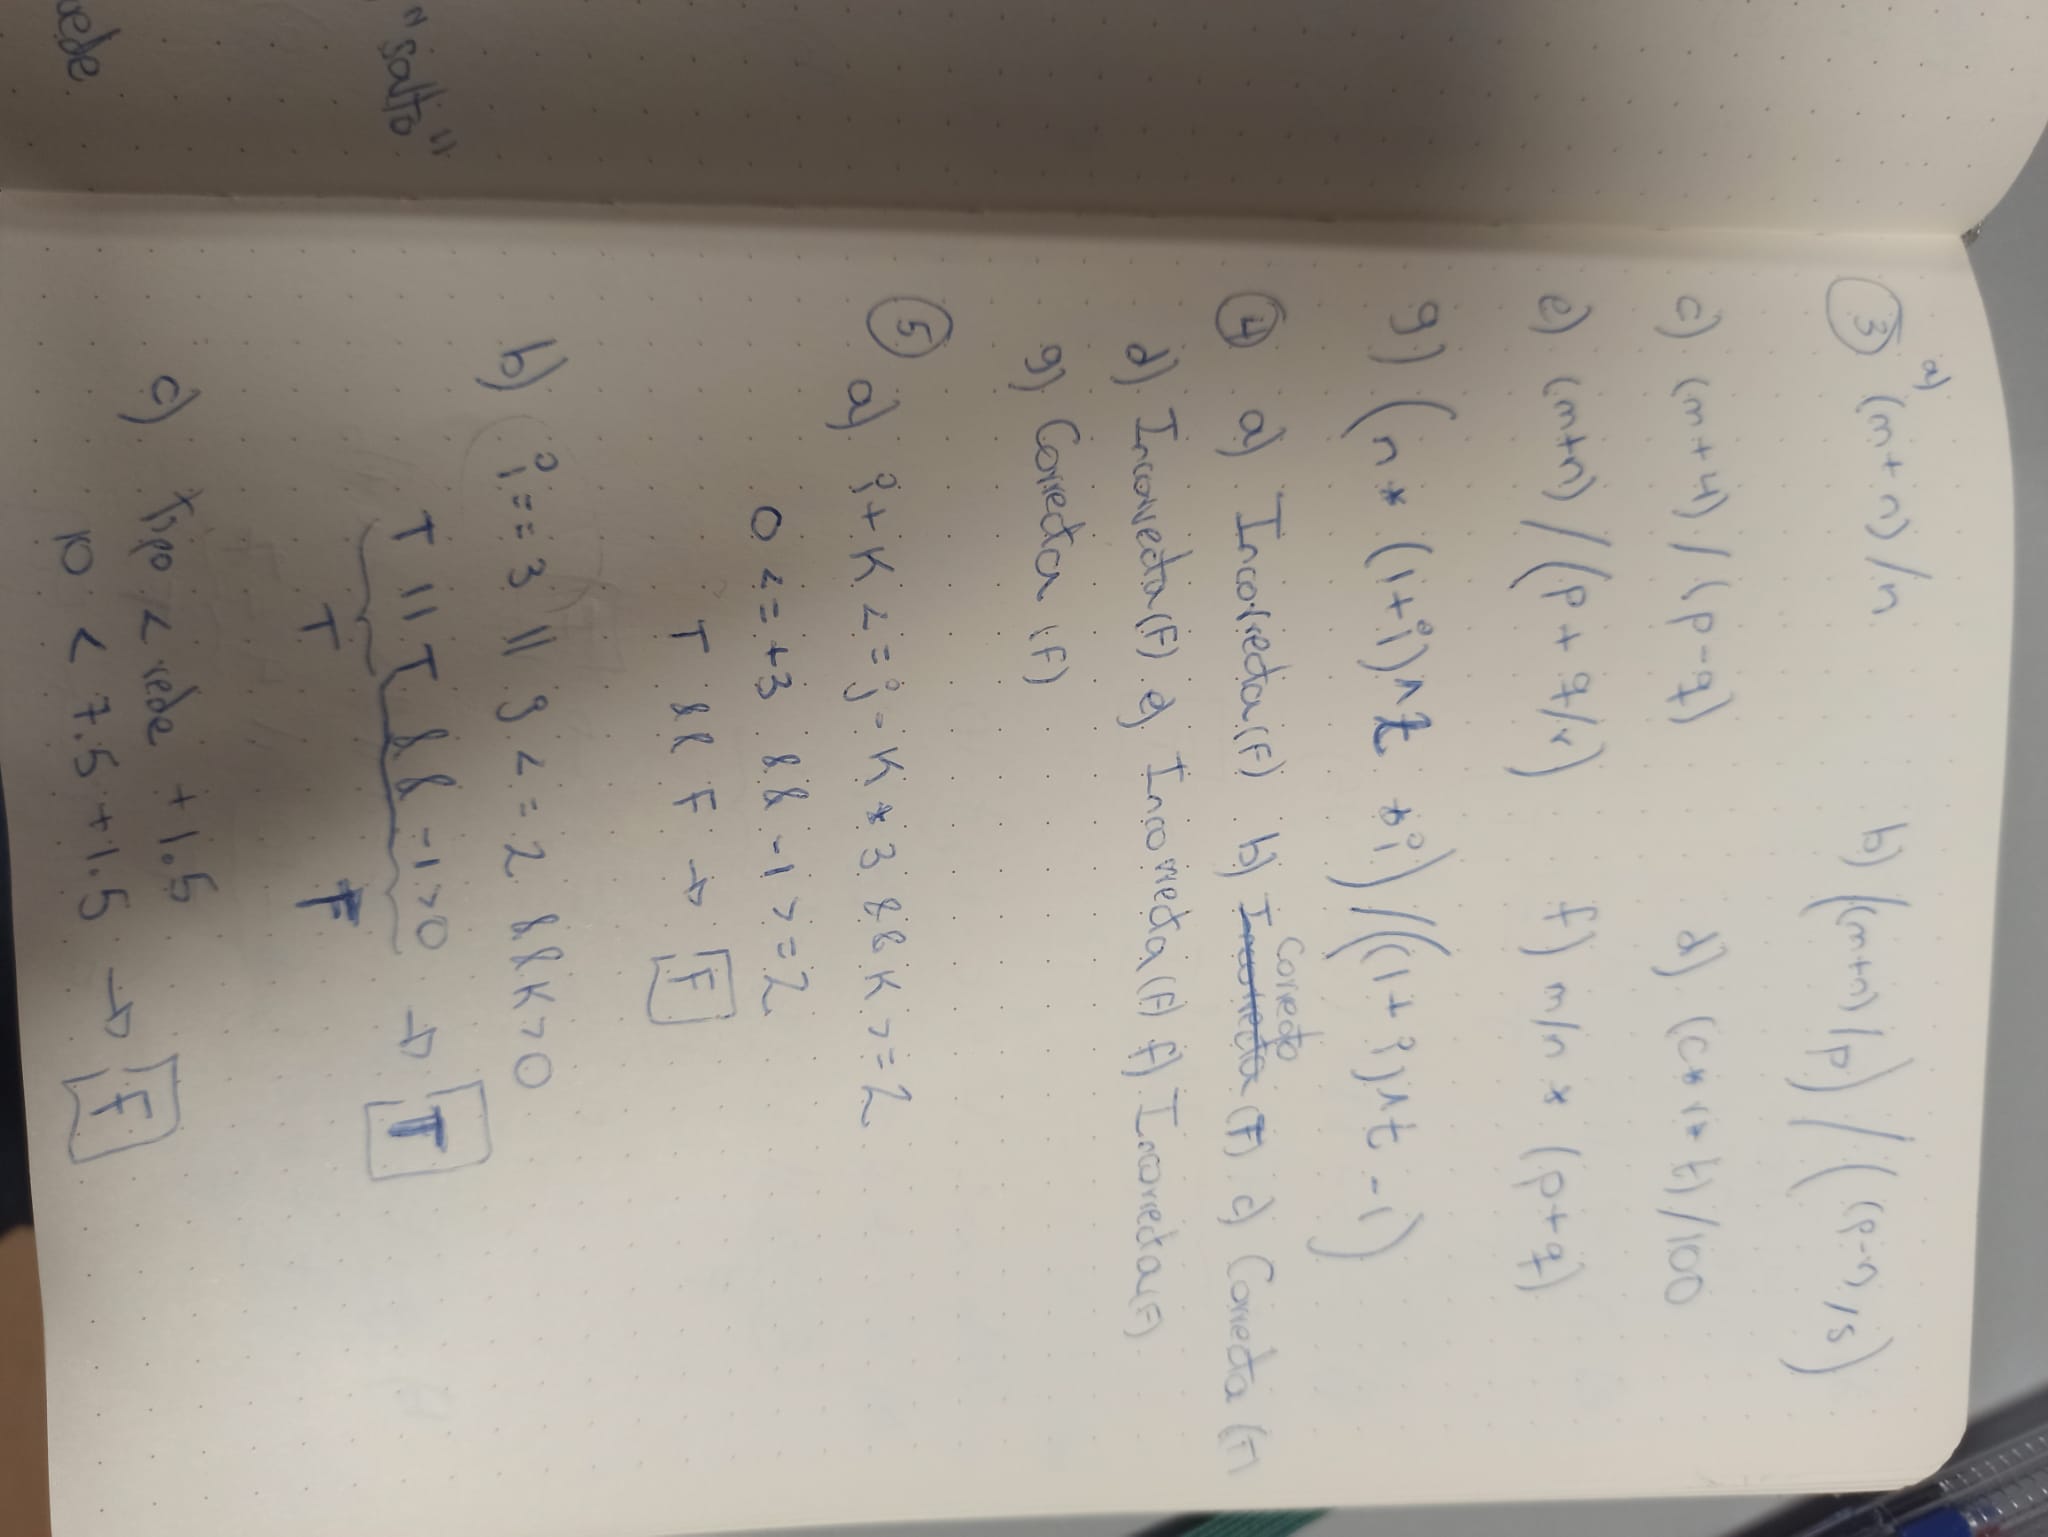 "salto"
③ a) (m+n)/n b) ((m+n)/p)/((p-n)/s)
c) (m+4)/(p-q) d) (c*r*t)/100
e) (m+n)/(p+q/r) f) m/n * (p+q)
g) (n*(1+i)^t *i)/((1+i)^t -1)
④ a) Incorrecta(F) b) Correcta (F) c) Correcta (F)
d) Incorrecta(F) e) Incorrecta(F) f) Incorrecta(F)
g) Correcta (F)
⑤
a) i+K <= j-K*3 && K >= 2
0 <= +3 && -1 >= 2
T && F → F
b) i == 3 || j <= 2 && K > 0
T || T && -1 > 0 → T
T F
c) Tipo < rede + 1.5
10 < 7.5 + 1.5 → F